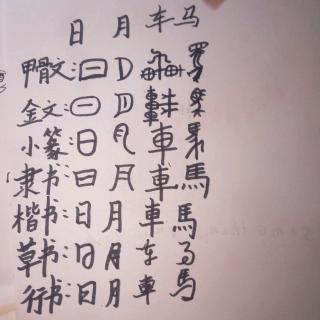 日 月 车 马
甲骨文:日 月 車 馬
金文:日 月 車 馬
小篆:日 月 車 馬
隶书:日 月 車 馬
楷书:日 月 車 馬
草书:日 月 车 马
行书:日 月 車 馬